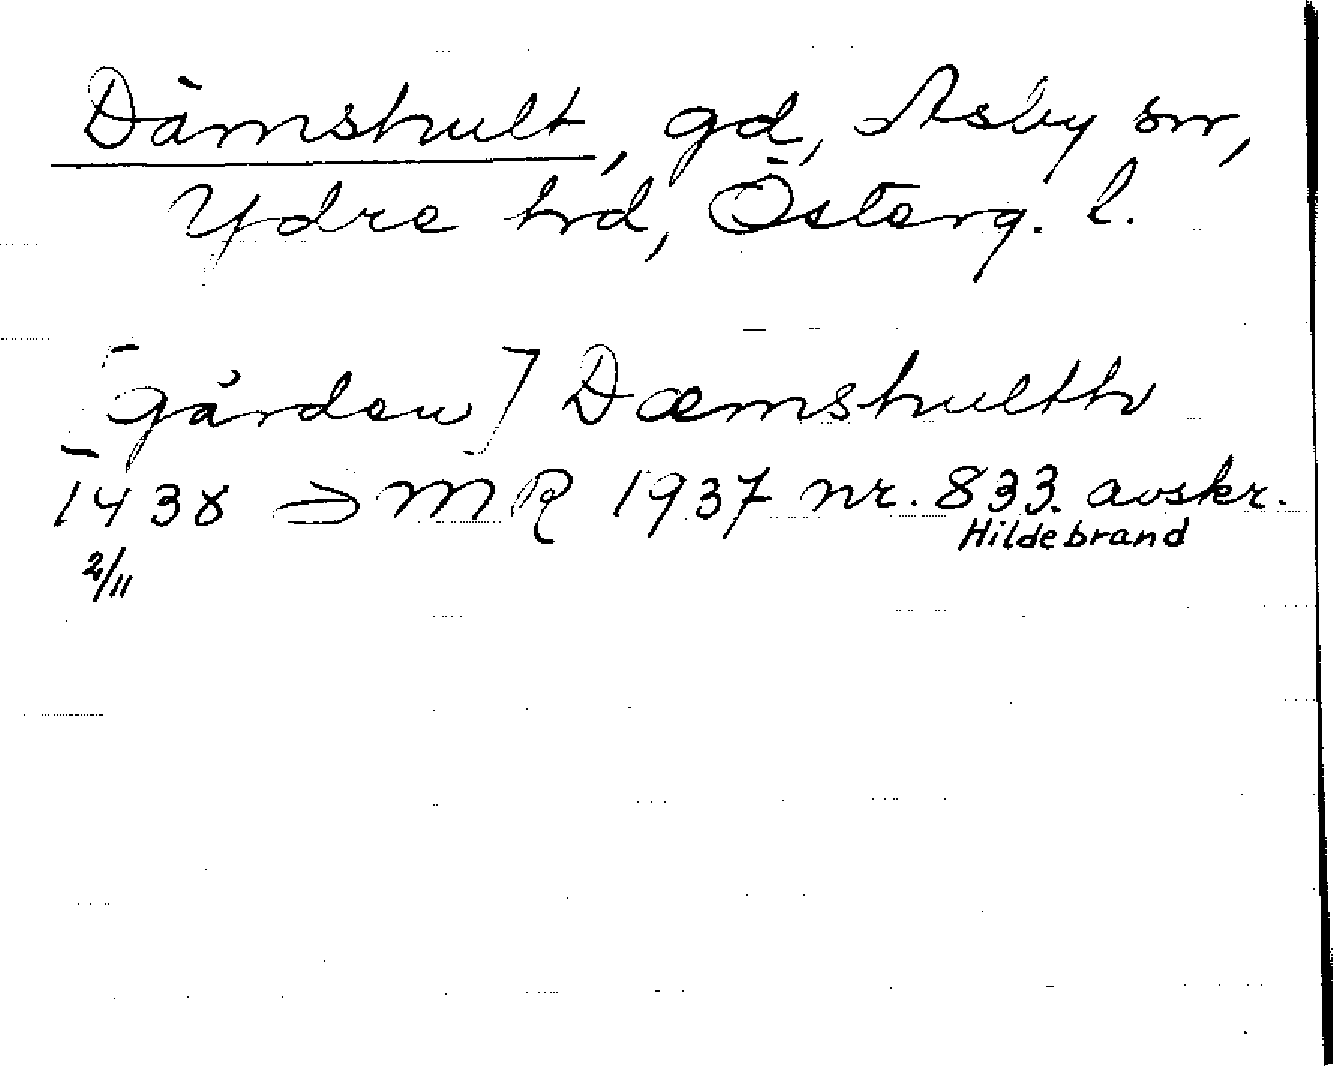 Dämshult, gd, Asby sn,
Ydre hd, Österg. l.
[gården] Dæmshulth
1438 MR 1937 nr. 833. avskr.
Hildebrand
2/11